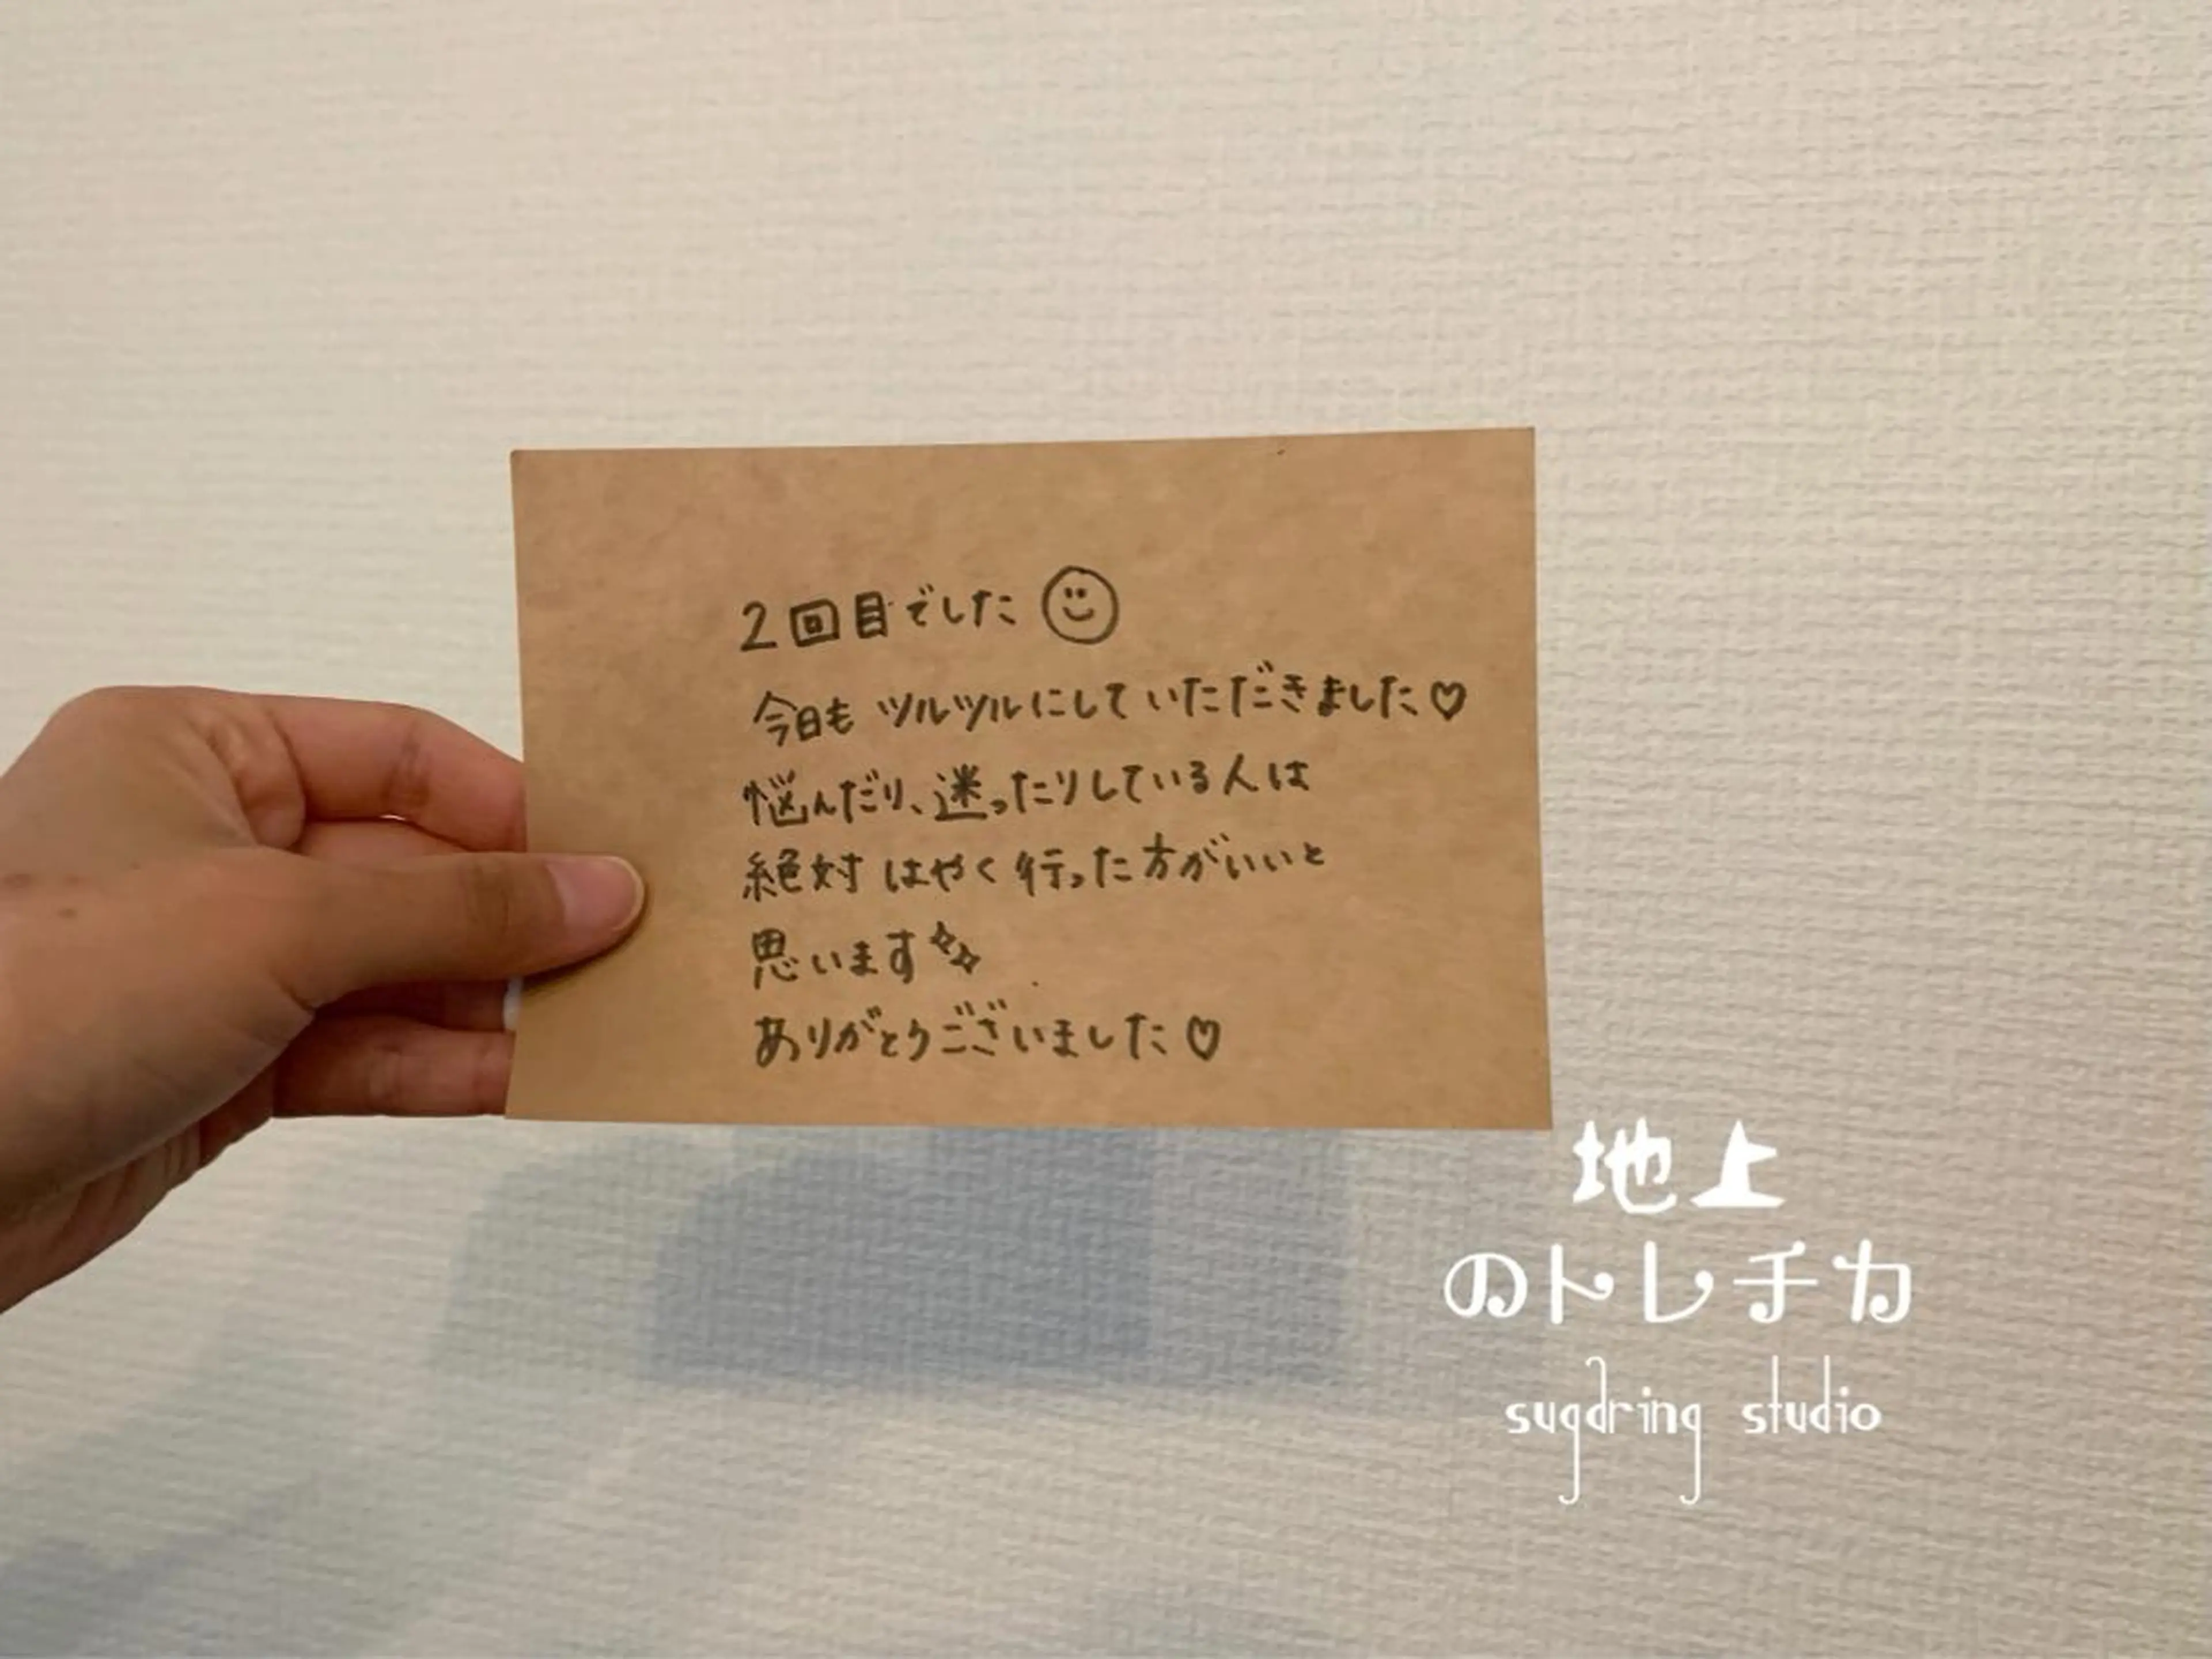 2回目でした
今日もツルツルにしていただきました♡
悩んだり、迷ったりしている人は
絶対はやく行った方がいいと
思います
ありがとうございました♡
地上
のトレチカ
sugaring studio